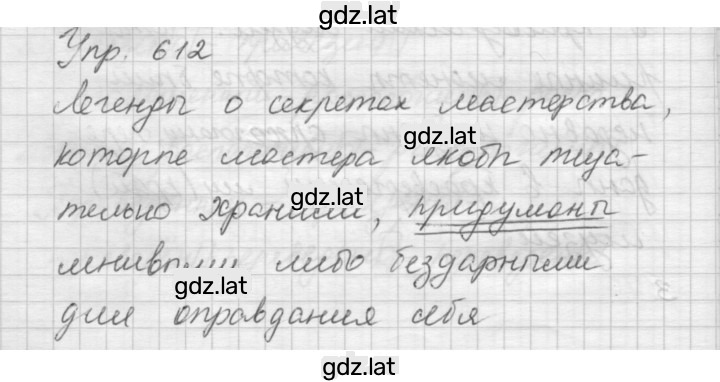 gdz.lat
Упр. 612
Легенды о секретах мастерства,
gdz.lat
которпе мастера якобы тща-
gdz.lat
тельно хранили, придуманы
ленивыми либо бездарными
gdz.lat
для оправдания себя
gdz.lat